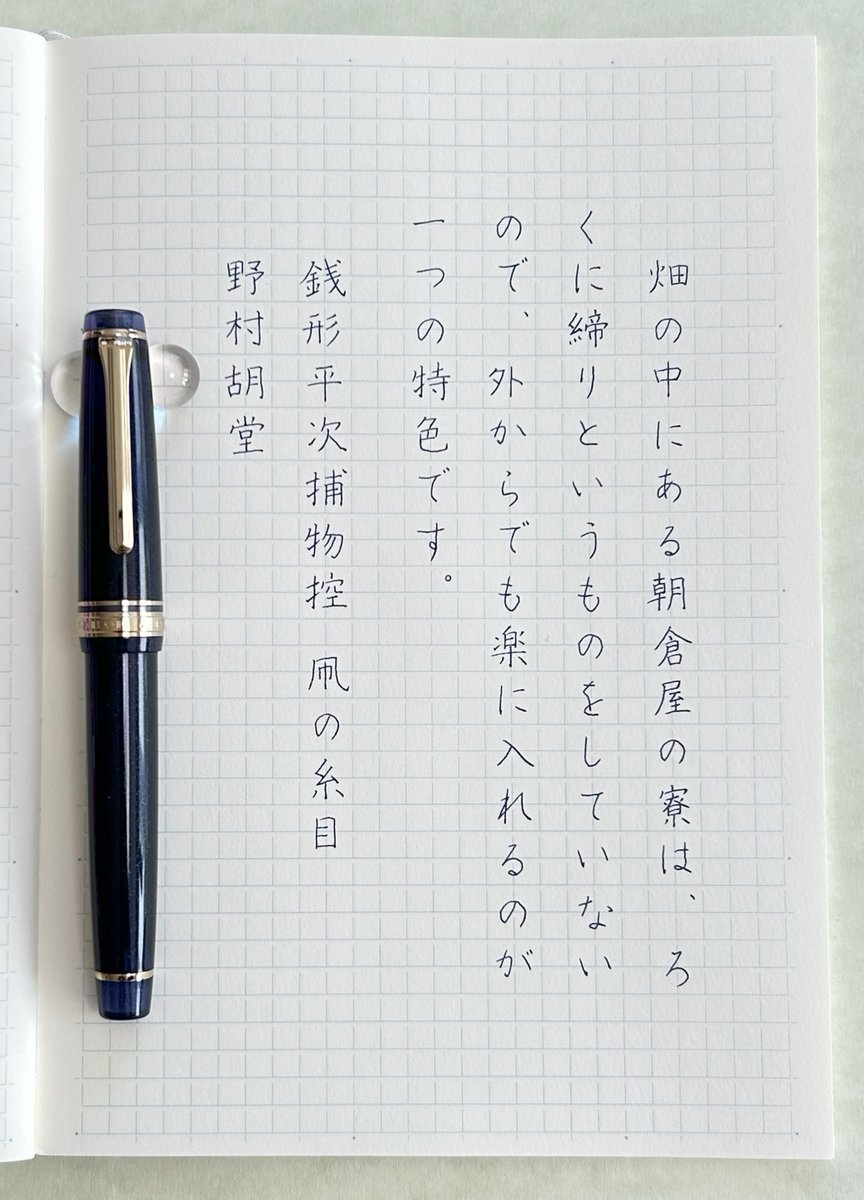 畑の中にある朝倉屋の寮は、ろ
くに締りというものをしていない
ので、外からでも楽に入れるのが
一つの特色です。
銭形平次捕物控　凧の糸目
野村胡堂